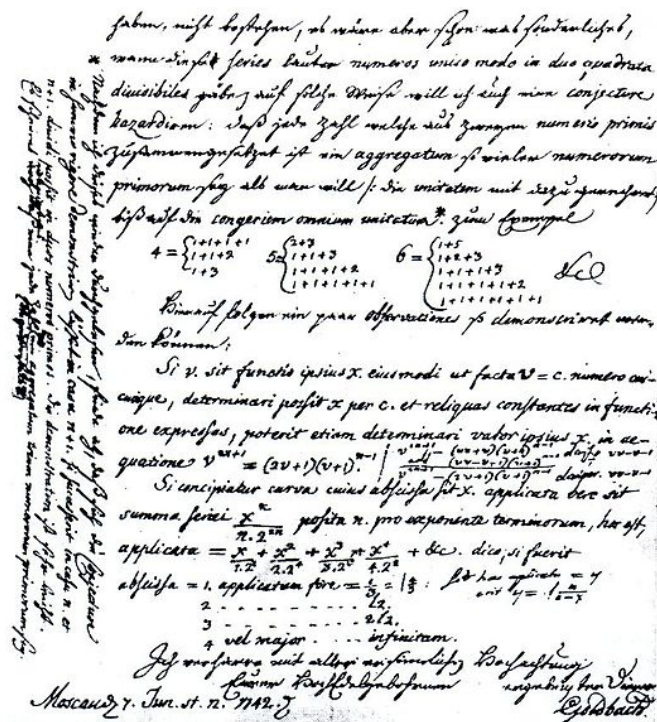 haben, nicht bestehen, es wäre aber schon was sonderliches,
wann diese series lauter numeros unico modo in duo quadrata
divisibiles gäbe, auf solche Weise will ich auch eine conjecture
hazardiren: daß jede Zahl welche aus zweyen numeris primis
zusammengesetzet ist ein aggregatum so vieler numerorum
primorum sey als man will /: die unitatem mit dazu gerechnet
biß auf die congeriem omnium unitatum* zum Exempel
4 = { 1+1+1+1
1+1+2
1+3
5 = { 2+3
1+1+3
1+1+1+2
1+1+1+1+1
6 = { 1+5
1+2+3
1+1+1+3
1+1+1+1+2
1+1+1+1+1+1
&c
Hierauf folgen ein paar observationes so demonstriret wer-
den können:
Si v. sit functio ipsius x. eiusmodi ut facta v = c. numero cui-
cunque, determinari possit x per c. et reliquas constantes in functi-
one expressas, poterit etiam determinari valor ipsius x. in ae-
quatione v^(2n+1) = (2v+1)(v+1)^(n-1)
Si concipiatur curva cuius abscissa sit x. applicata vero sit
summa seriei x^n/(n·2^(2n)) posita n. pro exponente terminorum, hoc est,
applicata = x/(1·2^2) + x^2/(2·2^4) + x^3/(3·2^6) + x^4/(4·2^8) + &c. dico, si fuerit
abscissa = 1. applicatam fore = l 4/3
2 - - - - l2.
3 - - - - 2l2.
4 vel major - - infinitam.
Ich verharre mit aller Hochachtung
Eurer HochEdelgebohrnen ergebenster Diener
Moscau d. 7. Jun. st. n. 1742. Goldbach.
* Nachdem ich dieses wieder durchgelesen, finde ich, daß sich die Conjecture
in summo rigore demonstriren lässet in casu n+1. si successerit in casu n. et
n+1. dividi possit in duos numeros primos. Die demonstration ist sehr leicht.
Es scheinet wenigstens, daß eine jede Zahl, die größer ist als 2, ein aggregatum trium numerorum primorum sey.